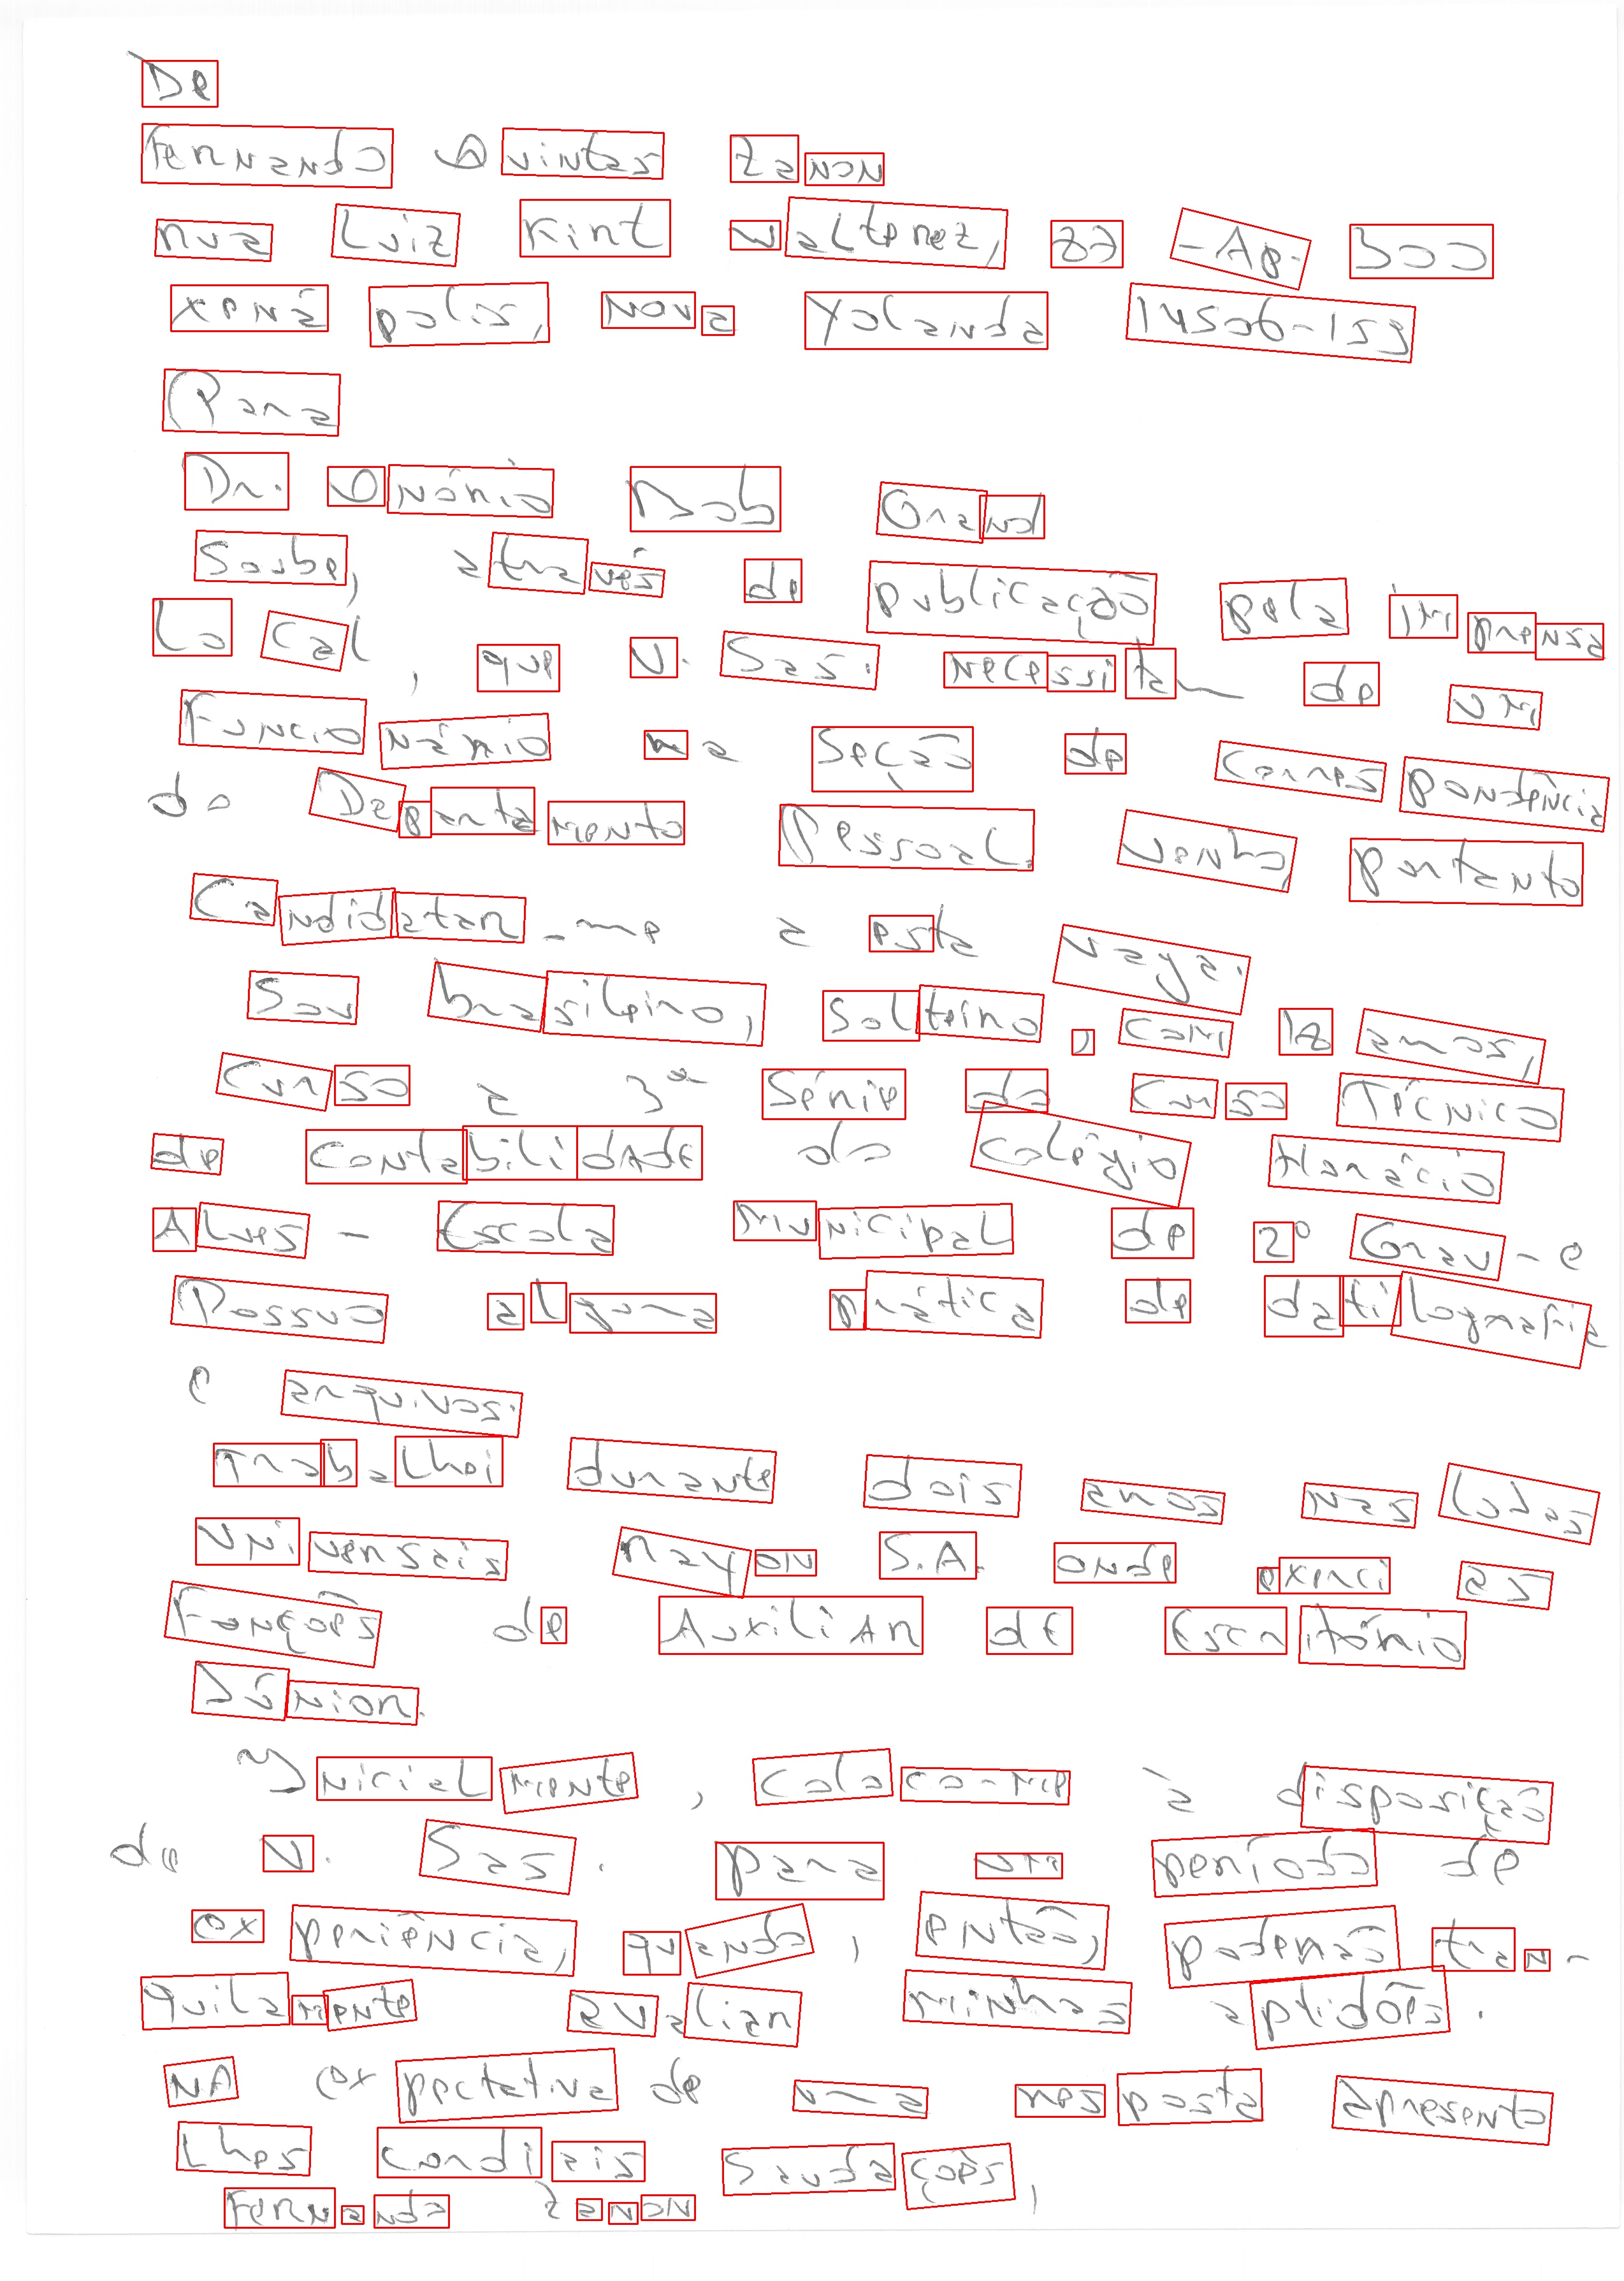 De
Fernando Quintas Zanon
rua Luiz Kint Walterez, 87 - Ap. 300
Xenã polis, Nova Yolanda 14506-159
Para
Dr. Onório Bob Grand
Soube, através de publicação pela imprensa
Local, que V. Sas. necessitam de um
Funcionário na Seção de Correspondência
do Departamento Pessoal. Venho, portanto
Candidatar-me a esta vaga.
Sou brasileiro, Solteiro, com 18 anos,
Curso a 3ª Série do Curso Técnico
de Contabilidade do Colégio Horácio
Alves - Escola Municipal de 2º Grau - e
Possuo alguma prática de datilografia
e arquivos.
Trabalhei durante dois anos nas Lojas
Universais Rayon S.A. onde exerci as
Funções de Auxiliar de Escritório
Júnior.
Inicialmente, coloco-me à disposição
de V. Sas. para um período de
experiência, quando, então, poderão tran-
quilamente avaliar minhas aptidões.
NA expectativa de uma resposta apresento
Lhes cordiais Saudações,
Fernando Zanon